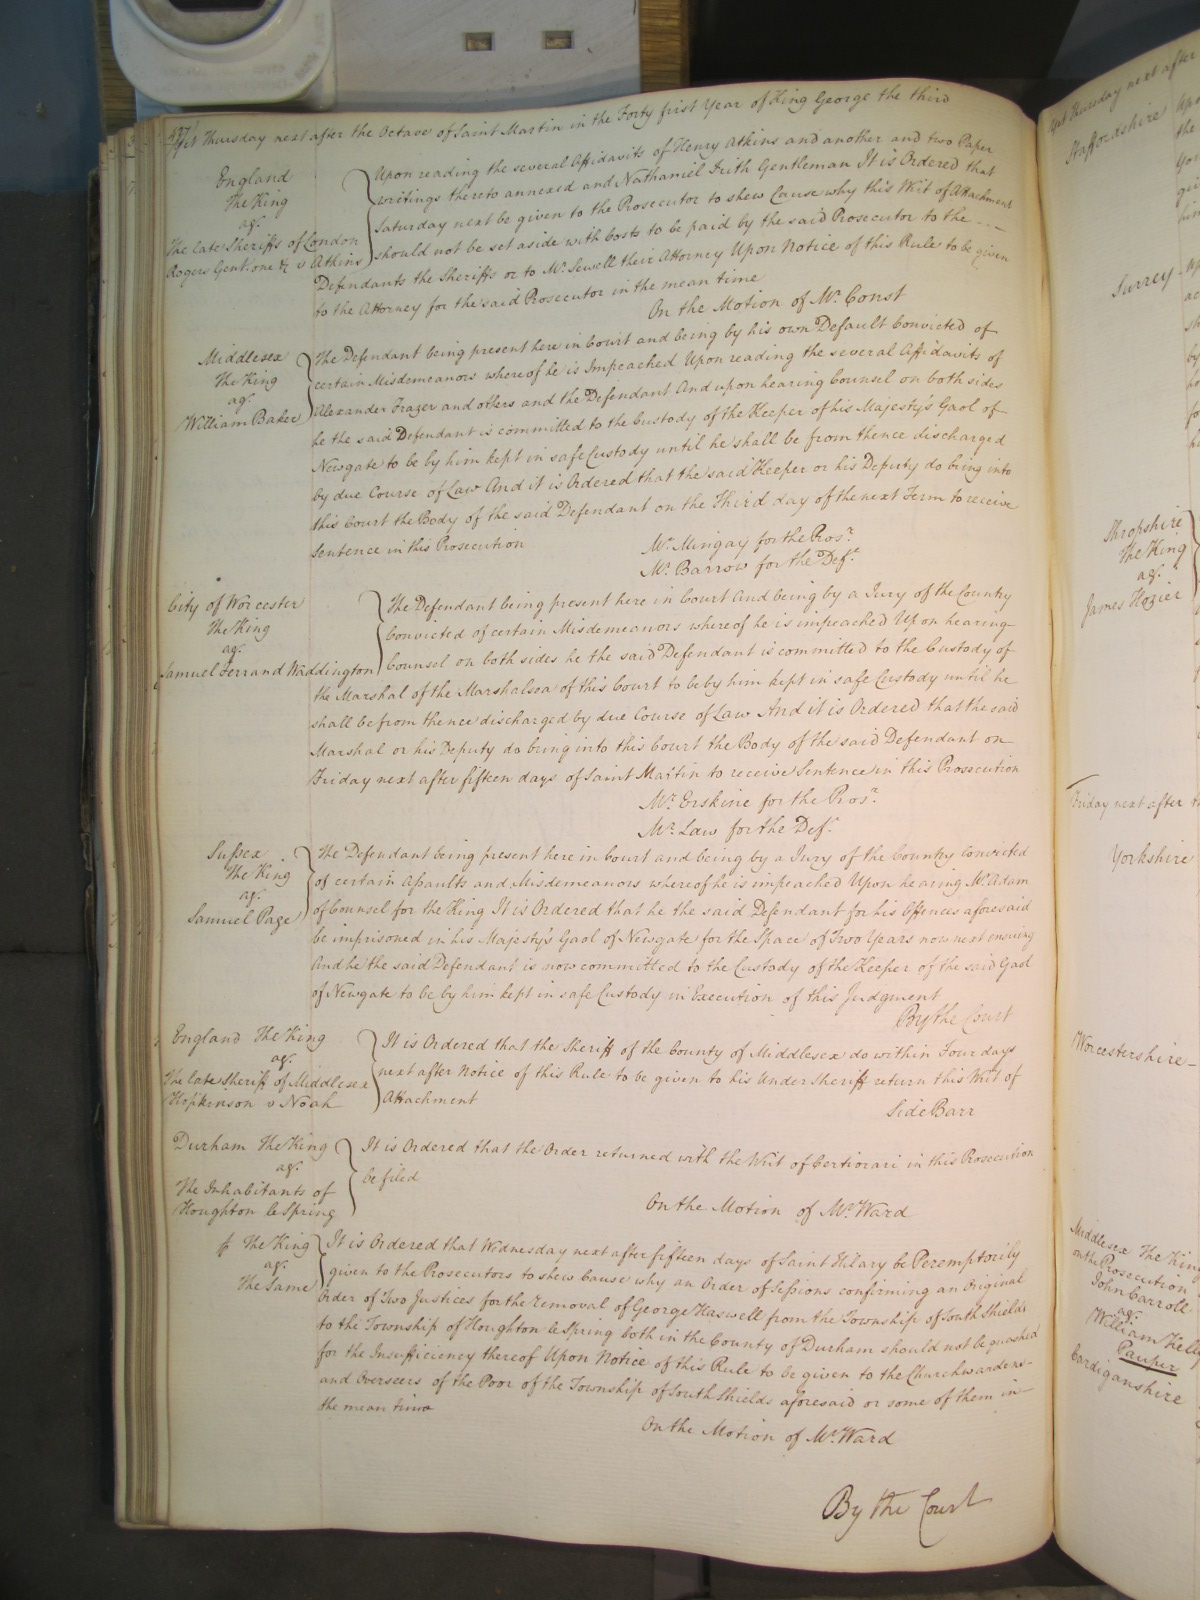 Yet Thursday next after the Octave of Saint Martin in the Forty first Year of King George the third
England
The King
agt.
The late Sheriffs of London
Rogers Gent. one &c v Atkins
Upon reading the several Affidavits of Henry Atkins and another and two Paper
writings thereto annexed and Nathaniel Frith Gentleman It is Ordered that
Saturday next be given to the Prosecutor to shew Cause why this Writ of Attachment
should not be set aside with Costs to be paid by the said Prosecutor to the
Defendants the Sheriffs or to Mr. Sewell their Attorney Upon Notice of this Rule to be given
to the Attorney for the said Prosecutor in the mean time
On the Motion of Mr. Const
Middlesex
The King
agt.
William Baker
The Defendant being present here in Court and being by his own Default Convicted of
certain Misdemeanors whereof he is Impeached Upon reading the several Affidavits of
Alexander Frazer and others and the Defendant And upon hearing Counsel on both sides
he the said Defendant is committed to the Custody of the Keeper of his Majesty's Gaol of
Newgate to be by him kept in safe Custody until he shall be from thence discharged
by due Course of Law And it is Ordered that the said Keeper or his Deputy do bring into
this Court the Body of the said Defendant on the Third day of the next Term to receive
Sentence in this Prosecution
Mr. Mingay for the Prosr.
Mr. Barrow for the Deft.
City of Worcester
The King
agt.
Samuel Ferrand Waddington
The Defendant being present here in Court And being by a Jury of the Country
Convicted of certain Misdemeanors whereof he is impeached Upon hearing
Counsel on both sides he the said Defendant is committed to the Custody of
the Marshal of the Marshalsea of this Court to be by him kept in safe Custody until he
shall be from thence discharged by due Course of Law And it is Ordered that the said
Marshal or his Deputy do bring into this Court the Body of the said Defendant on
Friday next after fifteen days of Saint Martin to receive Sentence in this Prosecution
Mr. Erskine for the Prosr.
Mr. Law for the Deft.
Sussex
The King
agt.
Samuel Page
The Defendant being present here in Court and being by a Jury of the Country Convicted
of certain Assaults and Misdemeanors whereof he is impeached Upon hearing Mr. Adam
of Counsel for the King It is Ordered that he the said Defendant for his Offences aforesaid
be imprisoned in his Majesty's Gaol of Newgate for the Space of Two Years now next ensuing
And he the said Defendant is now committed to the Custody of the Keeper of the said Gaol
of Newgate to be by him kept in safe Custody in Execution of this Judgment
By the Court
England The King
agt.
The late Sheriff of Middlesex
Hopkinson v Noah
It is Ordered that the Sheriff of the County of Middlesex do within Four days
next after Notice of this Rule to be given to his Under Sheriff return this Writ of
Attachment
Side Barr
Durham The King
agt.
The Inhabitants of
Houghton le Spring
It is Ordered that the Order returned with the Writ of Certiorari in this Prosecution
be filed
On the Motion of Mr. Ward
The King
agt.
The Same
It is Ordered that Wednesday next after fifteen days of Saint Hilary be Peremptorily
given to the Prosecutors to shew Cause why an Order of Sessions confirming an Original
Order of Two Justices for the Removal of George Haswell from the Township of South Shields
to the Township of Houghton le Spring both in the County of Durham should not be quashed
for the Insufficiency thereof Upon Notice of this Rule to be given to the Churchwardens
and Overseers of the Poor of the Township of South Shields aforesaid or some of them in
the mean time
On the Motion of Mr. Ward
By the Court
Yet Thursday next after
Staffordshire
Surrey
Shropshire
The King
agt.
James Hozier
Friday next after
Yorkshire
Worcestershire
Middlesex The King
on the Prosecution
John Carroll
agt.
William Kelly
Pauper
Cardiganshire